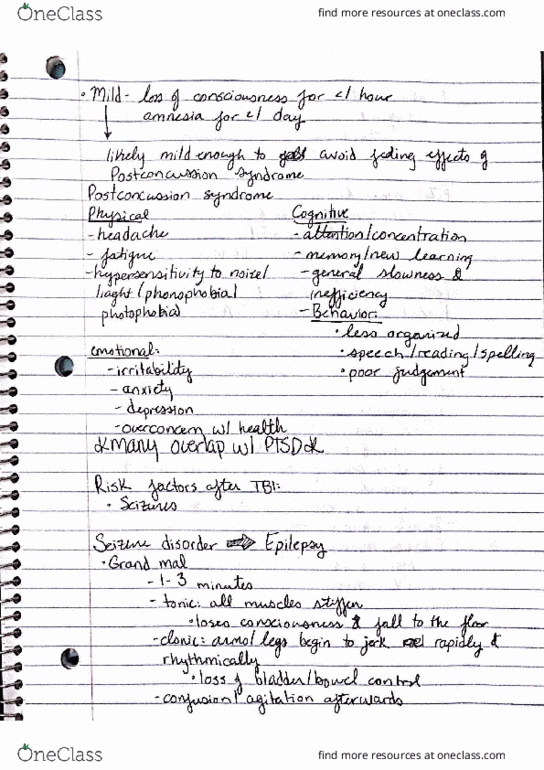 OneClass
find more resources at oneclass.com
• Mild - loss of consciousness for <1 hour
amnesia for <1 day
↓
likely mild enough to avoid feeling effects of
Postconcussion syndrome
Postconcussion syndrome
Physical
- headache
- fatigue
- hypersensitivity to noise/
light/phonophobia/
photophobia
Cognitive
- attention/concentration
- memory/new learning
- general slowness &
inefficiency
- Behavior:
• less organized
• speech/reading/spelling
• poor judgement
emotional:
- irritability
- anxiety
- depression
- overconcern w/ health
* Many overlap w/ PTSD *
Risk factors after TBI:
• Seizures
Seizure disorder ⇒ Epilepsy
• Grand mal
- 1-3 minutes
- tonic: all muscles stiffen
• loses consciousness & fall to the floor
- clonic: arms/legs begin to jerk rapidly &
rhythmically
• loss of bladder/bowel control
- confusion/agitation afterwards
OneClass
find more resources at oneclass.com